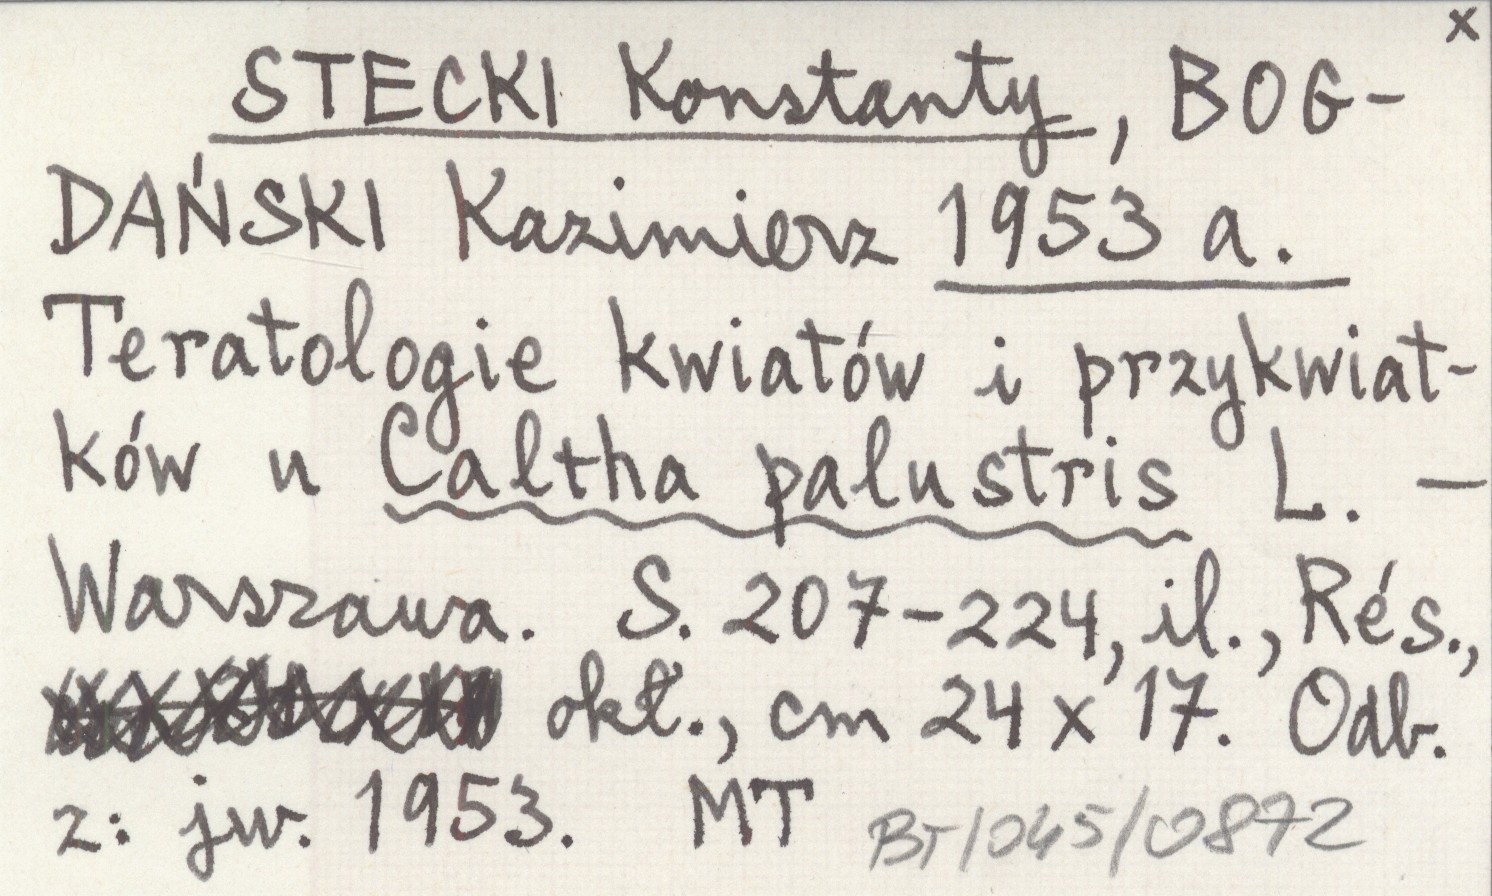 x
STECKI Konstanty, BOG-
DAŃSKI Kazimierz 1953 a.
Teratologie kwiatów i przykwiat-
ków u Caltha palustris L. —
Warszawa. S. 207-224, il., Rés.,
okł., cm 24 x 17. Odb.
z: jw. 1953. MT BT/045/0872